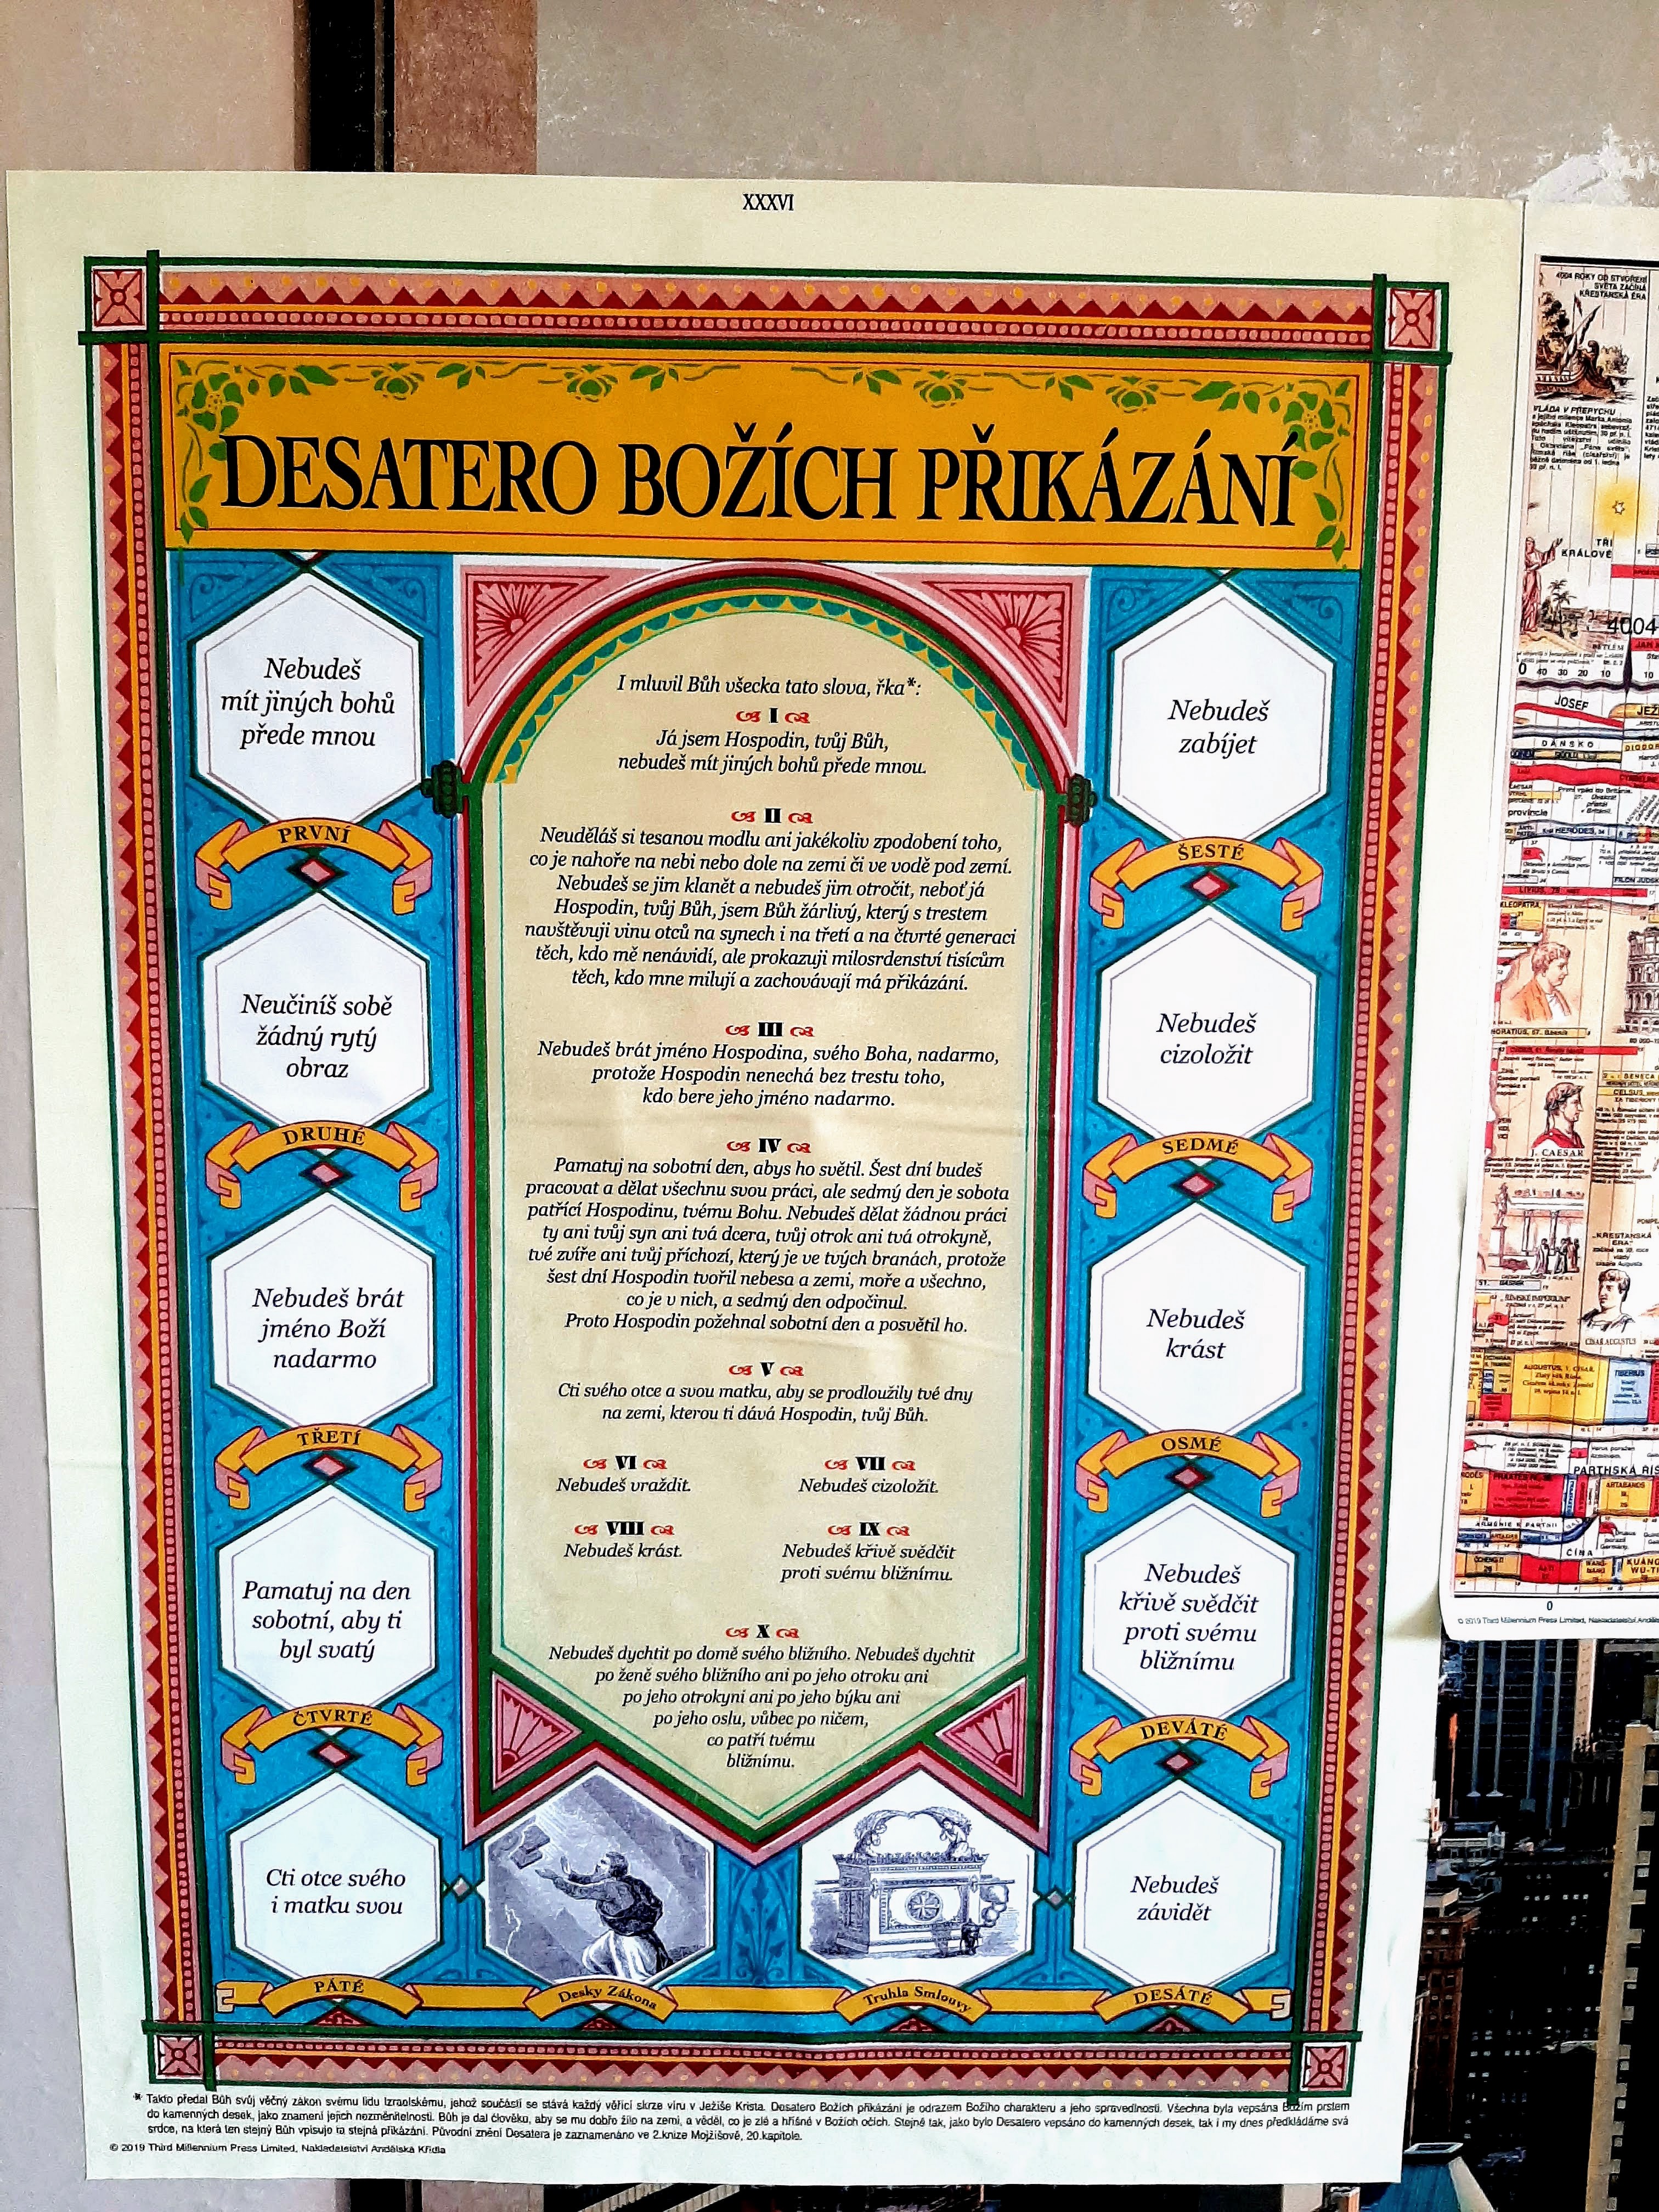 XXXVI
DESATERO BOŽÍCH PŘIKÁZÁNÍ
Nebudeš
mít jiných bohů
přede mnou
PRVNÍ
Neučiníš sobě
žádný rytý
obraz
DRUHÉ
Nebudeš brát
jméno Boží
nadarmo
TŘETÍ
Pamatuj na den
sobotní, aby ti
byl svatý
ČTVRTÉ
Cti otce svého
i matku svou
PÁTÉ
I mluvil Bůh všecka tato slova, řka*:
I
Já jsem Hospodin, tvůj Bůh,
nebudeš mít jiných bohů přede mnou.
II
Neuděláš si tesanou modlu ani jakékoliv zpodobení toho,
co je nahoře na nebi nebo dole na zemi či ve vodě pod zemí.
Nebudeš se jim klanět a nebudeš jim otročit, neboť já
Hospodin, tvůj Bůh, jsem Bůh žárlivý, který s trestem
navštěvuji vinu otců na synech i na třetí a na čtvrté generaci
těch, kdo mě nenávidí, ale prokazuji milosrdenství tisícům
těch, kdo mne milují a zachovávají má přikázání.
III
Nebudeš brát jméno Hospodina, svého Boha, nadarmo,
protože Hospodin nenechá bez trestu toho,
kdo bere jeho jméno nadarmo.
IV
Pamatuj na sobotní den, abys ho světil. Šest dní budeš
pracovat a dělat všechnu svou práci, ale sedmý den je sobota
patřící Hospodinu, tvému Bohu. Nebudeš dělat žádnou práci
ty ani tvůj syn ani tvá dcera, tvůj otrok ani tvá otrokyně,
tvé zvíře ani tvůj příchozí, který je ve tvých branách, protože
šest dní Hospodin tvořil nebesa a zemi, moře a všechno,
co je v nich, a sedmý den odpočinul.
Proto Hospodin požehnal sobotní den a posvětil ho.
V
Cti svého otce a svou matku, aby se prodloužily tvé dny
na zemi, kterou ti dává Hospodin, tvůj Bůh.
VI
Nebudeš vraždit.
VII
Nebudeš cizoložit.
VIII
Nebudeš krást.
IX
Nebudeš křivě svědčit
proti svému bližnímu.
X
Nebudeš dychtit po domě svého bližního. Nebudeš dychtit
po ženě svého bližního ani po jeho otroku ani
po jeho otrokyni ani po jeho býku ani
po jeho oslu, vůbec po ničem,
co patří tvému
bližnímu.
Desky Zákona
Truhla Smlouvy
Nebudeš
zabíjet
ŠESTÉ
Nebudeš
cizoložit
SEDMÉ
Nebudeš
krást
OSMÉ
Nebudeš
křivě svědčit
proti svému
bližnímu
DEVÁTÉ
Nebudeš
závidět
DESÁTÉ
* Takto předal Bůh svůj věčný zákon svému lidu Izraelskému, jehož součástí se stává každý věřící skrze víru v Ježíše Krista. Desatero Božích přikázání je odrazem Božího charakteru a jeho spravedlnosti. Všechna byla vepsána Božím prstem
do kamenných desek, jako znamení jejich nezměnitelnosti. Bůh je dal člověku, aby se mu dobře žilo na zemi, a věděl, co je zlé a hříšné v Božích očích. Stejně tak, jako bylo Desatero vepsáno do kamenných desek, tak i my dnes předkládáme svá
srdce, na která ten stejný Bůh vpisuje ta stejná přikázání. Původní znění Desatera je zaznamenáno ve 2.knize Mojžíšově, 20.kapitole.
© 2019 Third Millennium Press Limited, Nakladatelství Andělská Křídla
4004 ROKY OD STVOŘENÍ
SVĚTA ZAČÍNÁ
KŘESŤANSKÁ ÉRA
VLÁDA V PŘEPYCHU
TŘI
KRÁLOVÉ
4004
JOSEF
DÁNSKO
provincie
KLEOPATRA
J. CAESAR
CÍSAŘ AUGUSTUS
TIBERIUS
PARTHSKÁ
ČÍNA
0
© 2019 Third Millennium Press Limited, Nakladatelství